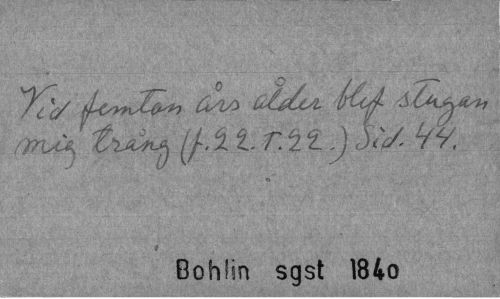 Vid femton års ålder blef stugan
mig trång (f. 22. r. 22.) Sid. 44.
Bohlin sgst 1840